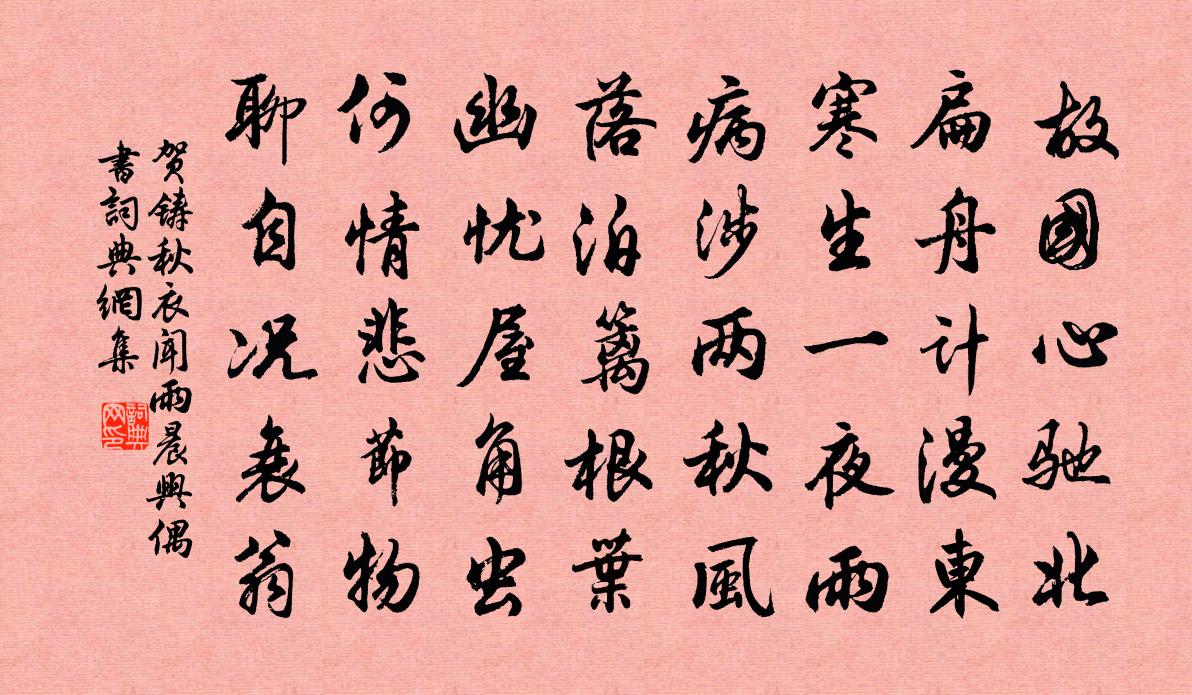 故國心馳北
扁舟計漫東
寒生一夜雨
病涉两秋風
落泊篱根葉
幽忧屋角虫
何情悲節物
聊自况衰翁
贺鑄秋衣闻雨晨興偶
書詞典網集
詞典网印